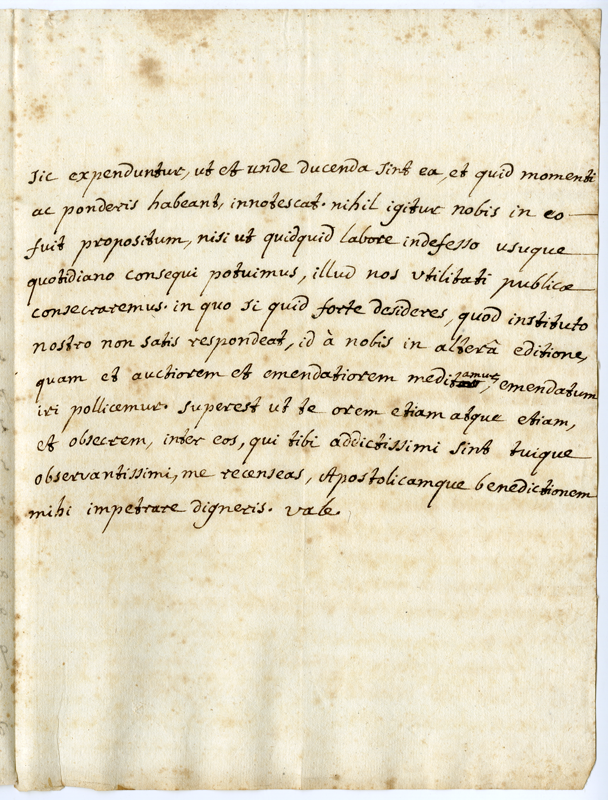 sic expenduntur, ut et unde ducenda sint ea, et quid momenti
ac ponderis habeant, innotescat. nihil igitur nobis in eo
fuit propositum, nisi ut quidquid labore indefesso usuque
quotidiano consequi potuimus, illud nos utilitati publicæ
consecraremus. in quo si quid forte desideres, quod instituto
nostro non satis respondeat, id à nobis in alterâ editione,
quam et auctiorem et emendatiorem meditamur, emendatum
iri pollicemur. superest ut te orem etiam atque etiam,
et obsecrem, inter eos, qui tibi addictissimi sint tuique
observantissimi, me recenseas, Apostolicamque benedictionem
mihi impetrare digneris. vale.